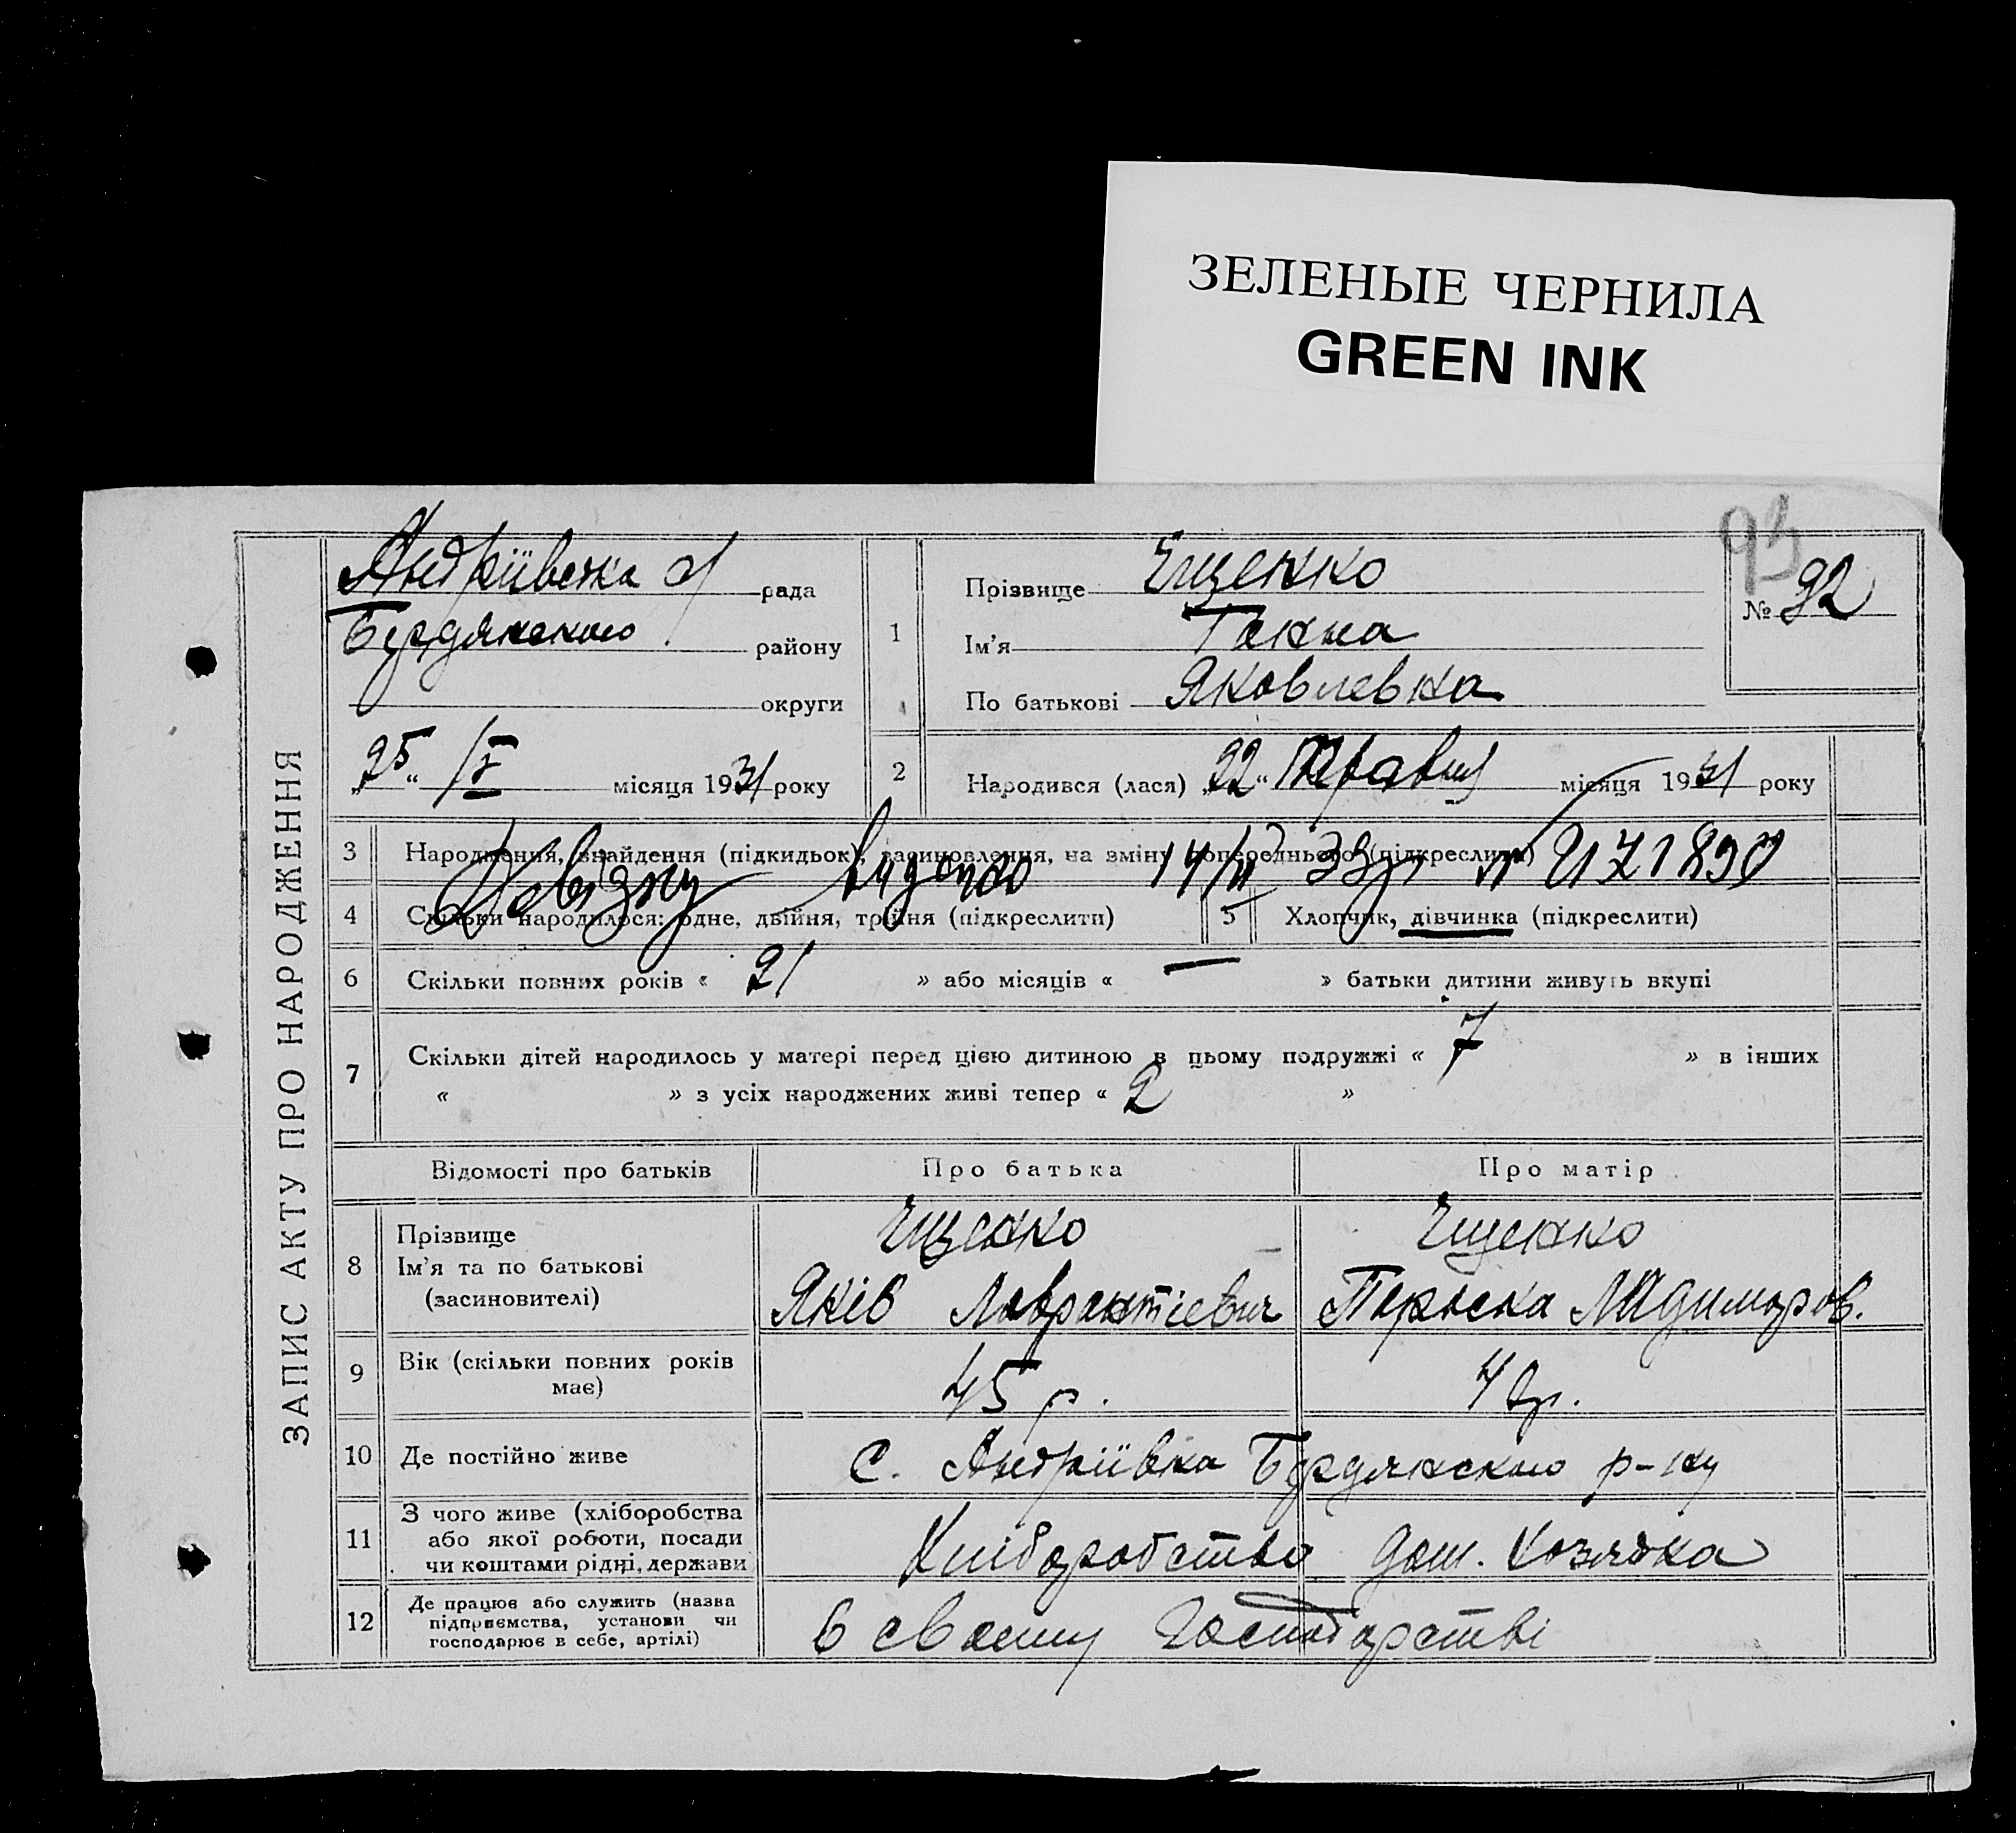 ЗЕЛЕНЫЕ ЧЕРНИЛА
GREEN INK
93
ЗАПИС АКТУ ПРО НАРОДЖЕННЯ
Андріївська с/рада
Бердянського району
округи
„25“ /V місяця 1931 року
1 Прізвище Іщенко
Ім'я Ганна
По батькові Яковлевна
№ 92
2 Народився (лася) „22“ Травня місяця 1931 року
3 Народження, знайдення (підкидьок), засиновлення, на зміну попереднього (підкреслити)
Довідку видано 14/VI 39 р № 2171890
4 Скільки народилося: одне, двійня, трійня (підкреслити)
5 Хлопчик, дівчинка (підкреслити)
6 Скільки повних років « 21 » або місяців « — » батьки дитини живуть вкупі
7 Скільки дітей народилось у матері перед цією дитиною в цьому подружжі « 7 » в інших
« » з усіх народжених живі тепер « 2 »
Відомості про батьків Про батька Про матір
8 Прізвище Ім'я та по батькові (засиновителі)
Іщенко Іщенко
Яків Лаврентієвич
9 Вік (скільки повних років має) 45 р. 42р.
10 Де постійно живе с. Андріївка Бердянського р-ну
11 З чого живе (хліборобства або якої роботи, посади чи коштами рідні, держави Хліборобство дом. Хозяйка
12 Де працює або служить (назва підприємства, установи чи господарює в себе, артілі) в своєму господарстві